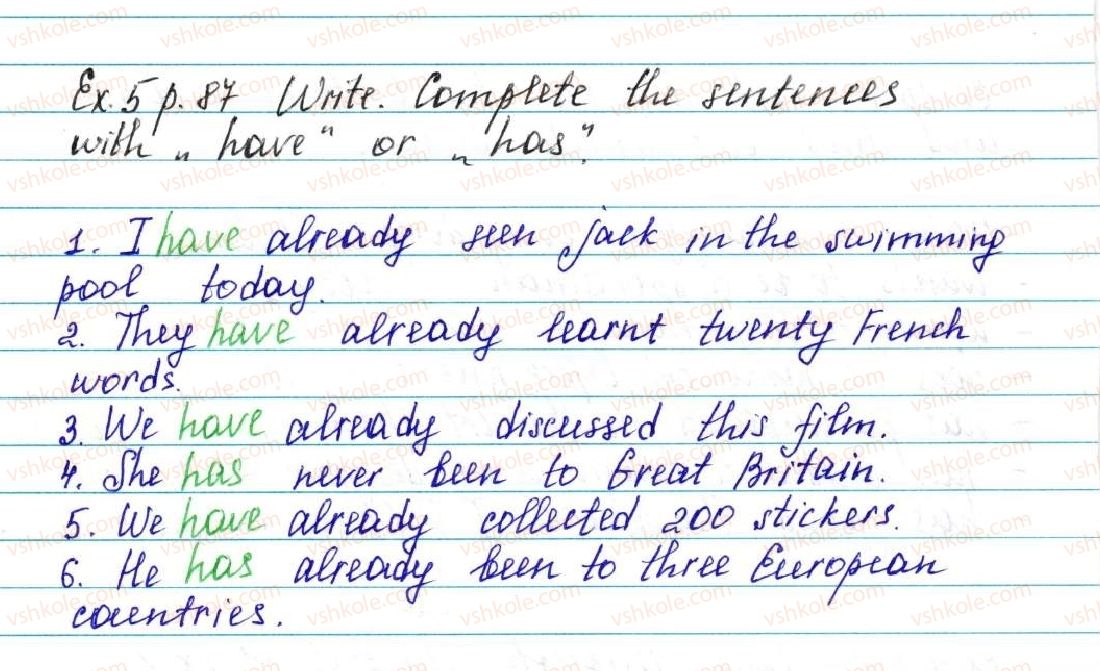 Ex. 5 p. 87 Write. Complete the sentences
with „have“ or „has“.
1. I have already seen jack in the swimming
pool today.
2. They have already learnt twenty French
words.
3. We have already discussed this film.
4. She has never been to Great Britain.
5. We have already collected 200 stickers.
6. He has already been to three European
countries.
vshkole.com